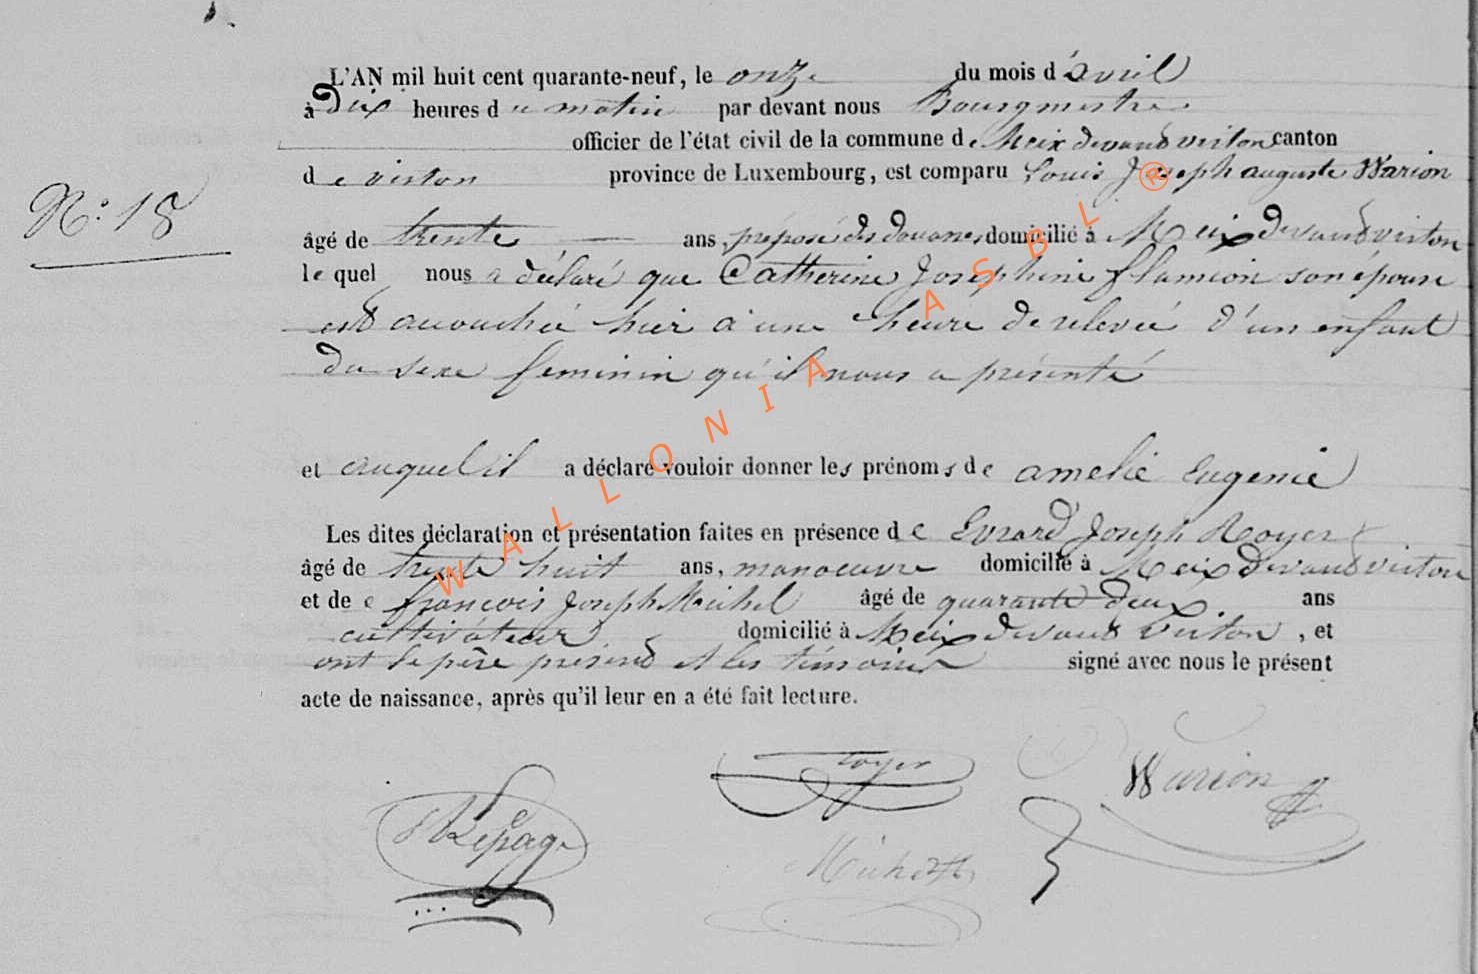 L'AN mil huit cent quarante-neuf, le onze du mois d'avril
à Dix heures du matin par devant nous Bourgmestre
officier de l'état civil de la commune de Meix devant virton canton
de virton province de Luxembourg, est comparu Louis Joseph auguste Warion
N° 18
âgé de trente ans, préposé des douanes domicilié à Meix devant virton
lequel nous a déclaré que Catherine Josephine flamion son épouse
est accouchée hier à une heure de relevée d'un enfant
du sexe feminin qu'il nous a présenté
et auquel il a déclaré vouloir donner les prénoms de amelie Eugenie
Les dites déclaration et présentation faites en présence de Evrard Joseph Royer
âgé de trente huit ans, manoeuvre domicilié à Meix devant virton
et de françois Joseph Michel âgé de quarante deux ans
cultivateur domicilié à Meix devant Virton, et
ont le père présent et les témoins signé avec nous le présent
acte de naissance, après qu'il leur en a été fait lecture.
Royer Warion
Lepage
Michel
WALLONIA ASBL ®